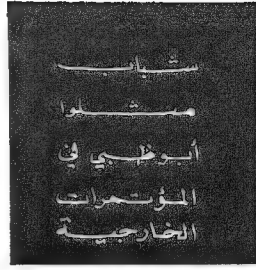 شباب
مثلوا
أبوظبي في
المؤتمرات
الخارجية